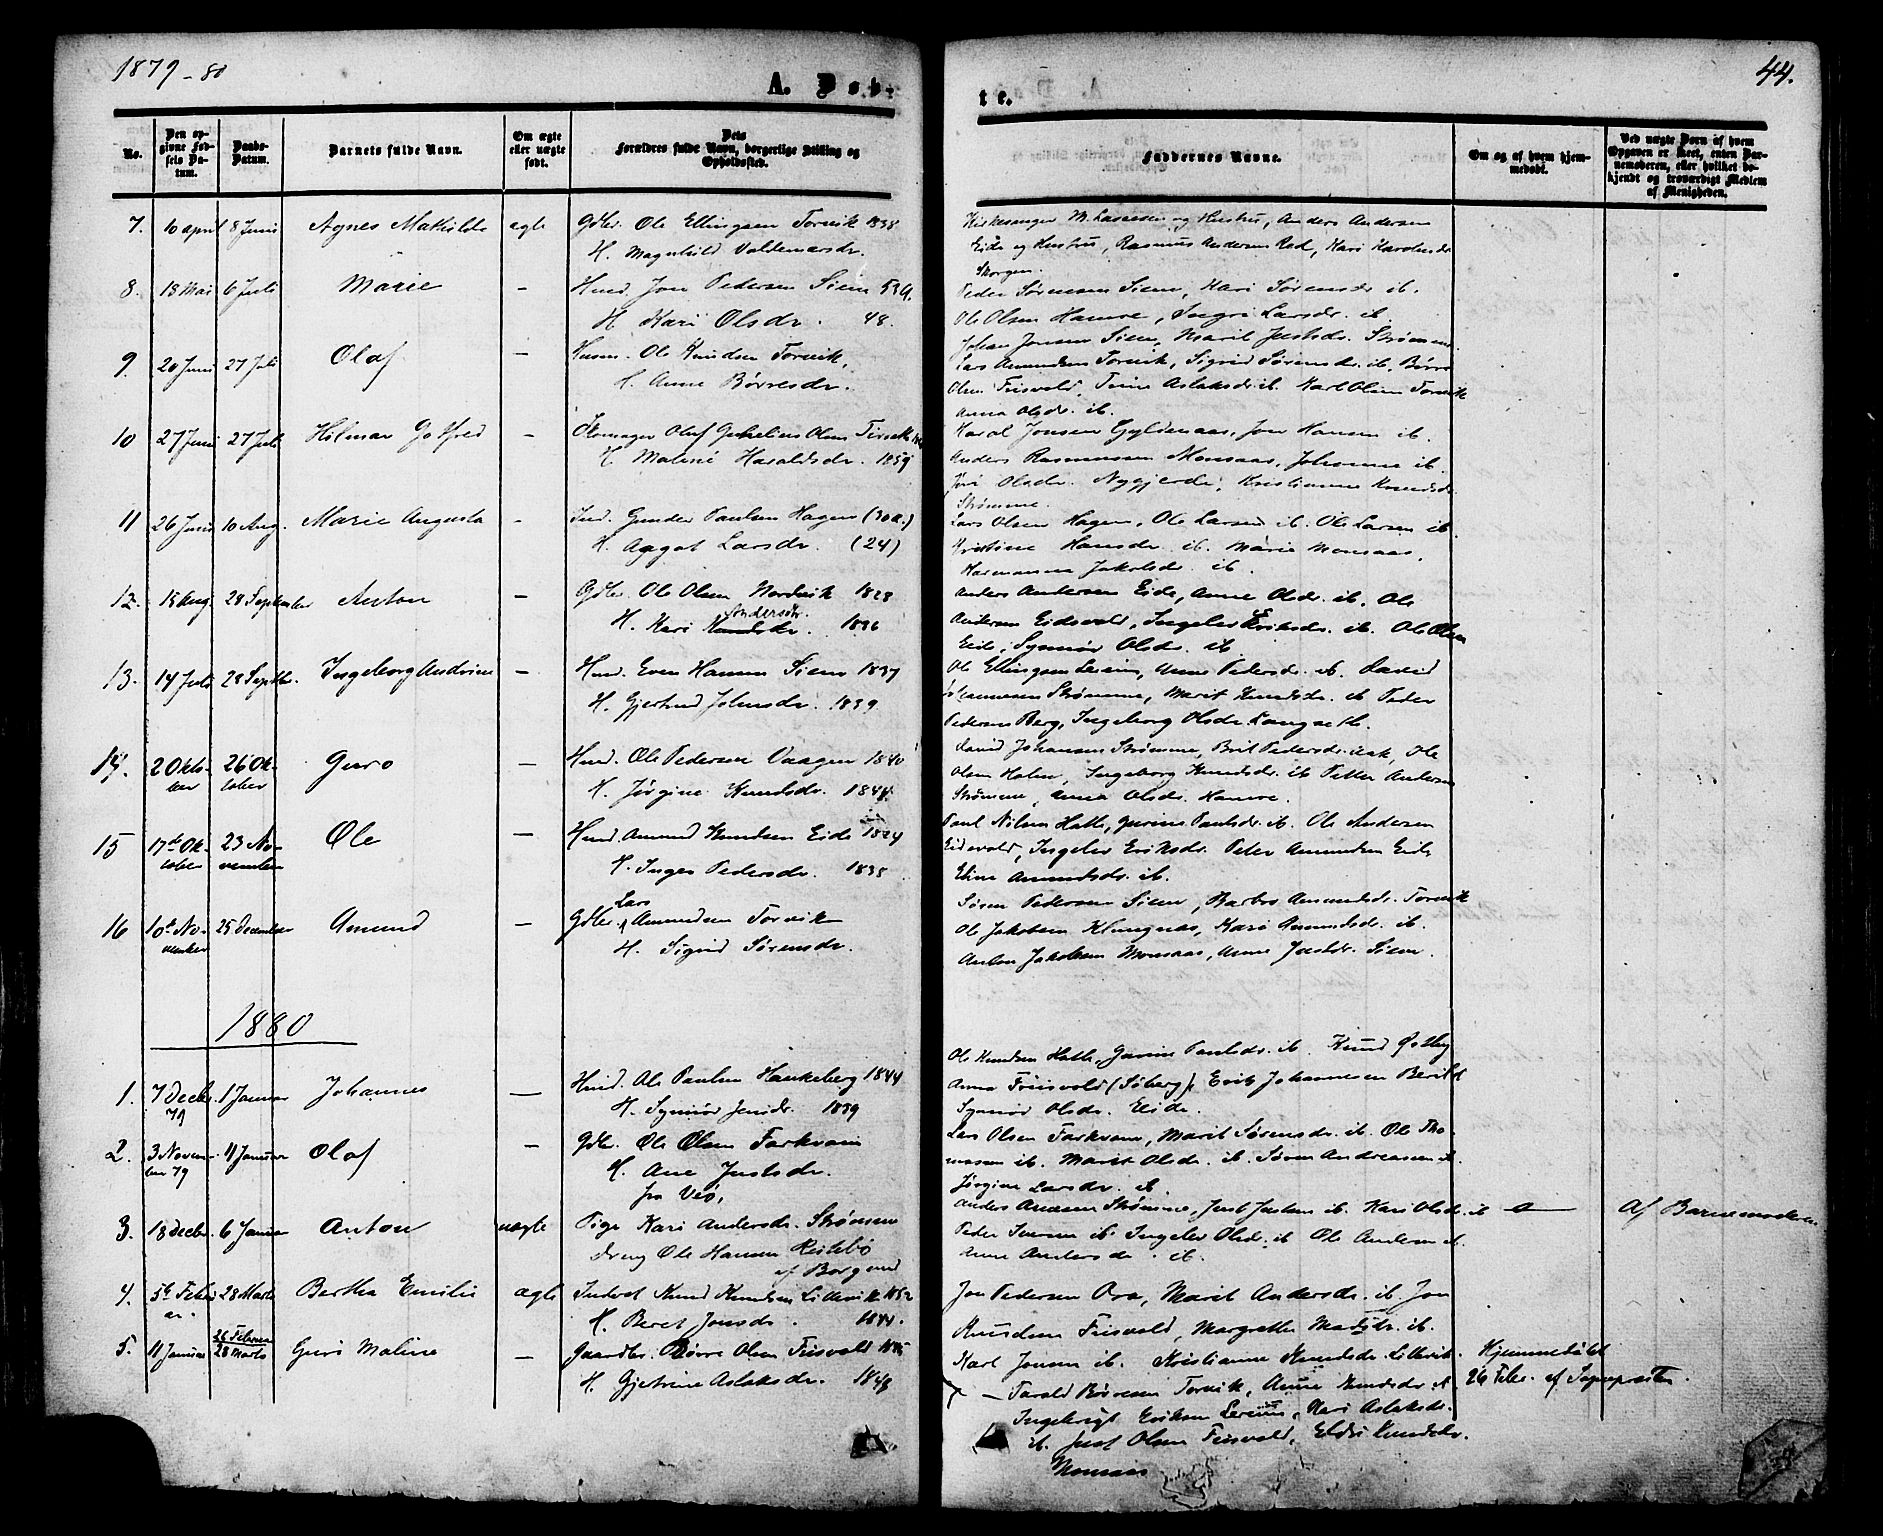 1879-80
A. Døb-
te.
44.
No.
Den op-
givne Fød-
sels Da-
tum.
Daabs-
Datum.
Barnets fulde Navn.
Om ægte
eller uægte
født.
Dets
Forældres fulde Navn, borgerlige Stilling og
Opholdssted.
Faddernes Navne.
Om og af hvem hjem-
medøbt.
Ved uægte Børn af hvem
Opgaven er skeet, enten Bar-
nemoderen, eller hvilket be-
kjendt og troværdigt Medlem
af Menigheden.
7. 10 april 8 Juni Agnes Mathilde ægte Gdbr. Ole Ellingsen Torvik 1838
H. Magnhild Valdemarsdr.
Kirkesanger M. Lassesen og Hustru, Anders Andersen
Eide og Hustru, Rasmus Andersen Rød, Kari
Skorgen.
8. 18 Mai 6 Juli Marie - Husd. Jon Pedersen Siem 53 A.
H. Kari Olsdr. 48.
Peder Sørensen Siem, Kari Sørensdr. ib.
Ole Olsen Hamre, Ingri Larsdr. ib.
Johan Jonsen Siem, Marit Justsdr. Strømme.
9. 20 Juni 27 Juli Olaf - Husm. Ole Knudsen Torvik,
H. Anne Børresdr.
Lars Amundsen Torvik, Sigrid Sørensdr. ib. Børre
Olsen Frisvold, Trine Aslaksdr. ib. Karl Olsen Torvik
Anna Olsdr. ib.
10 27 Juni 27 Juli Hilmar Gotfred - Skomager Oluf Olsen Torvik
H. Maline Haraldsdr. 1859
Haral Jonsen Gyldenaas, Jon Hansen ib.
Anders Rasmussen Monsaas, Johanne ib.
Olsdr. Nygjerde, Kristianne Knudsdr.
Strømme.
11 26 Juni 10 Aug. Marie Augusta - Ind. Gunder Paulsen Hagen (30 A.)
H. Aagot Larsdr. (24)
Lars Olsen Hagen, Ole Larsen ib. Ole Larsen ib.
Kristine Hansdr. ib. Marie Monsaas,
Hermanna Jakobsdr. ib.
12. 15 Aug. 28 September Anton - Gdbr. Ole Olsen Nordvik 1828
Andersdr.
H. Kari Knudsdr. 1836
Anders Andersen Eide, Anne Olsdr. ib. Ole
Andersen Eidsvold, Ingelev Eriksdr. ib. Ole Olsen
Eide, Synnøv Olsdr. ib.
13. 14 Juli 28 Septbr. Ingeborg Andrine - Husd. Even Hansen Siem 1837
H. Gjertrud Johnsdr. 1839
Ole Ellingsen Lereim, Anne Pedersdr. ib. David
Johannesen Strømme, Marit Knudsdr. ib. Peder
Pedersen Berg, Ingeborg Olsdr. Langseth.
14. 2 Okto- 26 Ok- Guro - Husd. Ole Pedersen Vaagen 1840
ber tober H. Jørgine Knudsdr. 1844
David Johansen Strømme, Brit Pedersdr. Ole
Olsen Holm, Ingeborg Knudsdr. ib. Petter Andersen
Strømme, Anna Olsdr. Hamre.
15 17de Ok- 23 No- Ole - Husd. Amund Knudsen Eide 1824
tober vember H. Inger Pedersdr. 1838
Paul Nilsen Hatle, Gurine Paulsdr. ib. Ole Andersen
Eidsvold, Ingelev Eriksdr. Peter Amundsen Eide
Eline Amundsdr. ib.
16 10de No- 25 December Amund - Lars
vember Gdbr. Amundsen Torvik
H. Sigrid Sørensdr.
Søren Pedersen Siem, Barbro Amundsdr. Torvik
Ole Jakobsen Klungnæs, Kari Amundsdr. ib.
Anton Jakobsen Monsaas, Anne Justsdr. Siem.
1880
1. 7 Decbr. 1 Januar Johannes - Husd. Ole Paulsen Haukeberg 1844
79 H. Synnøv Jensdr. 1839
Ole Knudsen Hatle, Gurine Paulsdr. ib. Knud
Anna Friisvold (Søberg), Erik Johannesen Berild
Synnøv Olsdr. Eide.
2. 3 Novem- 11 Januar Olaf - Gdbr. Ole Olsen Farkvam
ber 79 H. Ane Justsdr.
fra Veø,
Lars Olsen Farkvam, Marit Sørensdr. ib. Ole Tho-
massen ib. Marit Olsdr. ib. Søren Andreassen ib.
Jørgine Larsdr. ib.
3. 18 Decbr. 6 Januar Anton uægte Pige Kari Andersdr. Strømme
Dreng Ole Hansen
af Borgund
Anders Strømme, Just Justsen ib. Kari Olsdr. ib
Peder Iversen ib. Ingelev Olsdr. ib Ole Andersen ib.
Anne Andersdr. ib.
Af Barnemoderen
4. 5te Febru 28 Marts Bertha Emilie ægte Inderst Knud Knudsen Lillevik 1852
ar. H. Beret Jonsdr. 1844.
Jon Pedersen Øra, Marit Andersdr. ib. Jon
Knudsen Friisvold, Margrethe ib.
Karl Jonsen ib. Kristianne Knudsdr. Lillevik.
5. 11 Januar 26 Februar
28 Marts Guri Maline - Gaardbr. Børre Olsen Friisvold 1845
H. Gjertrine Aslaksdr. 1848
- Tarald Børresen Torvik, Anne Knudsdr. ib
Ingebrigt Eriksen Lereim, Kari Aslaksdr.
ib. Just Olsen Friisvold, Eldri Knudsdr.
Monsaas
Hjemmedøbt
26 Febr. af Sognepræsten.